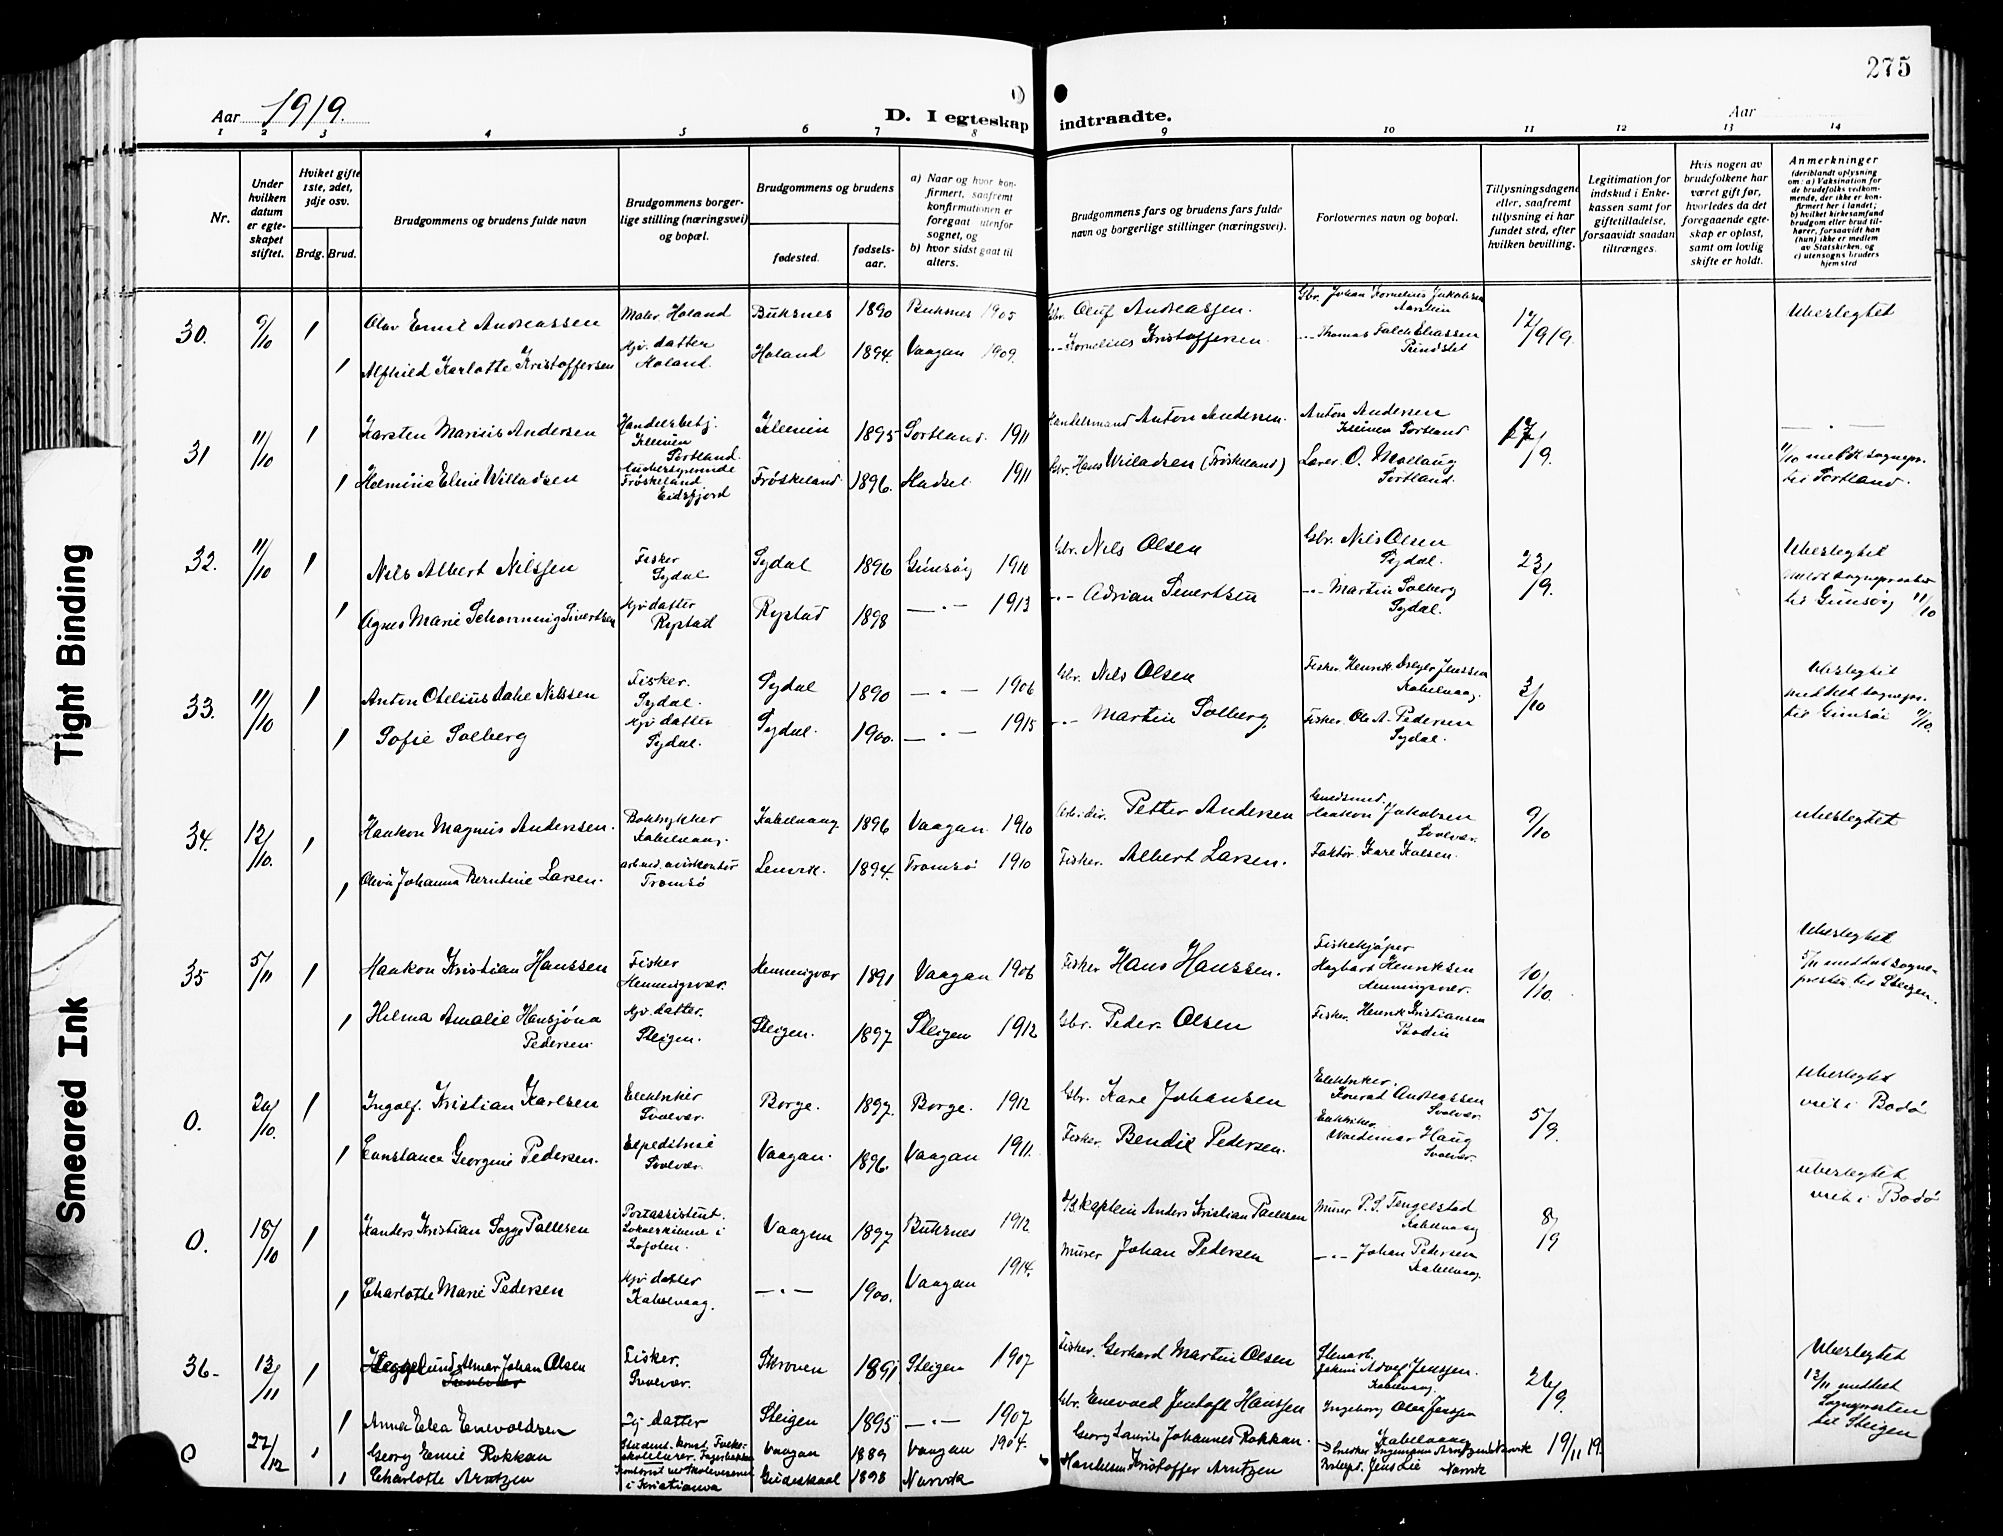 275
Aar 1919.
D. I egteskap indtraadte.
Aar
1 2 3 4 5 6 7 8 9 10 11 12 13 14
Nr.
Under hvilken datum er egteskapet stiftet.
Hviket gifte 1ste, 2det, 3dje osv.
Brdg. Brud.
Brudgommens og brudens fulde navn
Brudgommens borgerlige stilling (næringsvei) og bopæl.
Brudgommens og brudens
fødested.
fødselsaar.
a) Naar og hvor konfirmert, saafremt konfirmationen er foregaat utenfor sognet, og
b) hvor sidst gaat til alters.
Brudgommens fars og brudens fars fulde navn og borgerlige stillinger (næringsvei).
Forlovernes navn og bopæl.
Tillysningsdagene eller, saafremt tillysning ei har fundet sted, efter hvilken bevilling.
Legitimation for indskud i Enkekassen samt for giftetilladelse, forsaavidt saadan tiltrænges.
Hvis nogen av brudefolkene har været gift før, hvorledes da det foregaaende egteskap er opløst, samt om lovlig skifte er holdt.
Anmerkninger (deriblandt oplysning om: a) Vaksination for de brudefolks vedkommende, der ikke er konfirmert her i landet; b) hvilket kirkesamfund brudgom eller brud tilhører, forsaavidt han (hun) ikke er medlem av Statskirken, og c) utensogns bruders hjemsted
30. 9/10 1 Olav Emil Andreassen Maler Holand Buksnes 1890 Buksnes 1905 Gbr. Oluf Andreassen. Gbr. Johan Kornelius Jakobsen 12/9 19. Ubeslegtet
1 Alfhild Karlotte Kristoffersen Hjv. datter Holand. Holand 1894. Vaagan 1909. -"- Kornelius Kristoffersen. -"- Thomas Falck Eliassen
31 11/10 1 Karsten Marius Andersen Handelsbetj. Kleiven Sortland. Kleiven 1895 Sortland. 1911 Handelsmand Anton Andersen. Anton Andersen Kleiven Sortland 17/9. — " —
1 Helmine Eline Willadsen Frøskeland Eidsfjord Frøskeland. 1896. Hadsel. 1911 Gbr. Hans Willadsen (Frøskeland) Lærer O. Mollaug Sortland. 11/10 meldt sognepr. til Sortland.
32. 11/10 1 Nils Albert Nilssen Fisker Sydal Sydal 1896 Gimsøy 1910 Gbr. Nils Olsen Gbr. Nils Olsen Sydal. Ubeslegtet
1 Agnes Marie Schønning Sivertsen Hjv datter Rystad Rystad 1898 — " — 1913 -"- Adrian Sivertsen -"- Martin Solberg Sydal. meldt sogneprester til Gimsøy 11/10
33. 11/10 1 Anton Otelius Dahl Nilssen Fisker. Sydal. Sydal 1890 — " — 1906 Gbr. Nils Olsen Fisker Henrik Dreyer Jenssen Kabelvaag. 3/10 Ubeslegtet
1 Sofie Solberg Hjv datter Sydal. Sydal. 1900. — " — 1915 -"- Martin Solberg Fisker. Ole A. Pedersen Sydal. meddelt sognepr. til Gimsøi 11/10.
34. 12/10. 1 Haakon Magnus Andersen. Boktrykker Kabelvaag. Kabelvaag. 1896 Vaagan. 1910 Petter Andersen Haakon Jakobsen Svolvær. 9/10 ubeslegtet
1 Olivia Johanna Berntine Larsen. Tromsø Lenvik. 1894. Tromsø 1910 Fisker. Albert Larsen. Faktor. Kare Kolsen.
35 5/11 1 Haakon Kristian Hanssen Fisker Henningsvær. Henningsvær 1891 Vaagan 1906 Fisker Hans Hanssen. Fiskekjøper Hagbart Henriksen Henningsvær. 10/10. Ubeslegtet
1 Helma Amalie Hansjøna Pedersen. Hjv. datter. Steigen. Steigen. 1897 Steigen 1912 Gbr. Peder Olsen Fisker. Henrik Kristiansen Bodin 5/11 meddelt sognepresten til Steigen.
0. 26/10. 1 Ingolf Kristian Karlsen Elektriker Svolvær. Borge. 1897. Borge. 1912 Gbr. Kare Johansen Elektriker. Konrad Andreassen Svolvær. 5/9. ubeslegtet viet i Bodø
1 Constance Georgine Pedersen. Expeditrise Svolvær. Vaagan. 1896. Vaagan 1911. Fisker. Bendix Pedersen. Elektriker. Waldemar Haug Svolvær.
0. 18/10 1 Xanders Kristian Sogge Pallesen Postassistent. i Lofoten. Vaagan 1897 Buksnes 1912 D/S kaptein Anders Kristian Pallesen Murer P. S. Tengelstad Kabelvaag ubeslegtet viet i Bodø
1 Charlotte Marie Pedersen Hjv datter Kabelvaag. — " — 1900. Vaagan 1914. Murer Johan Pedersen — " — Johan Pedersen Kabelvaag.
36. 13/11 1 Heggelund Almar Johan Olsen Fisker. Svolvær. Skroven 1891 Steigen 1907 Fisker. Gerhard Martin Olsen Jenssen. Kabelvaag. 26/9 Ubeslegtet
1 Anna Elea Enevoldsen Hj. datter Steigen 1895 — " — 1907 Gbr. Enevold Jentoft Hanssen Ingeborg Olea Jenssen Kabelvaag 12/11 meddelt Sognepresten til Steigen
0 27/12 1 Georg Emil Rokkan Vaagan 1889 Vaagan 1904. Georg Laurits Johannes Rokkan. Narvik 19/11 19.
1 Charlotte Arntzen i Kristiania 1898 Narvik Kristoffer Arntzen Jens Lie Narvik
Tight Binding
Smeared Ink